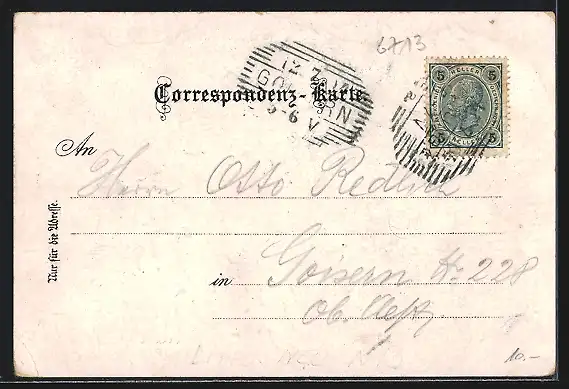 6713
Correspondenz-Karte.
5 HELLER 5
5 HELLER 5
An
Herrn Otto Redlich
in Goisern Nr. 228
Ob. Oest.
Nur für die Adresse.
10.-